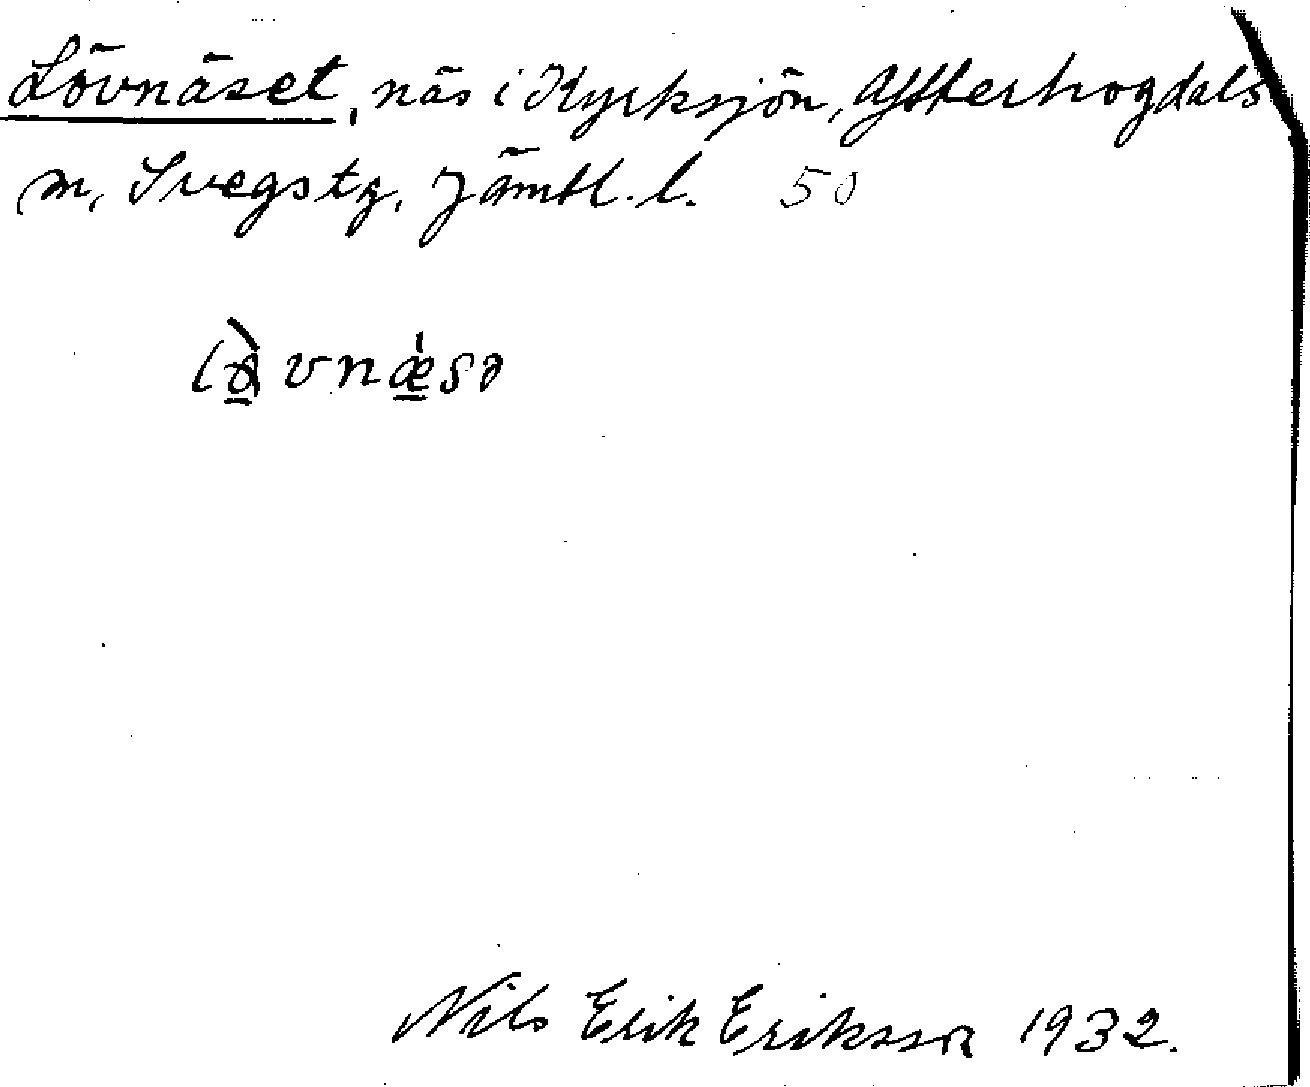 Lövnäset, näs i Kyrksjön, Ytterhogdals
sn, Svegs tg, Jämtl. l. 50
Nils Erik Eriksson 1932.